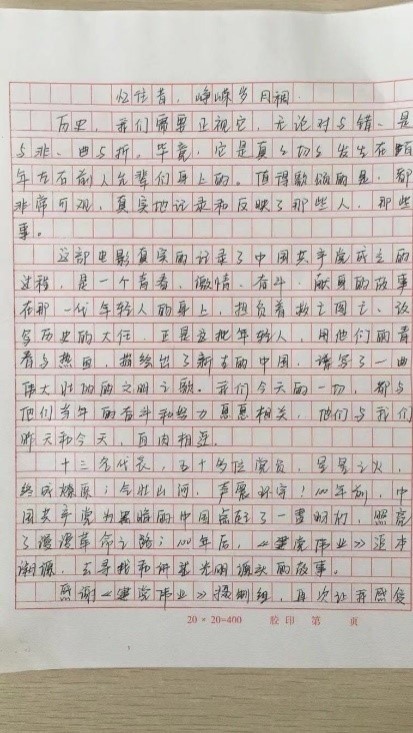 忆往昔，峥嵘岁月稠
历史，我们需要正视它，无论对与错、是
与非、曲与折，毕竟，它是真真切切发生在百
年左右前人先辈们身上的。值得歌颂的是，都
非常可观，真实地记录和反映了那些人，那些
事。
这部电影真实的记录了中国共产党成立的
过程，是一个青春、激情、奋斗、献身的故事
在那一代年轻人的身上，担负着救亡图亡、改
写历史的大任 正是这批年轻人，用他们的青
春与热血，描绘出了新生的中国，谱写了一曲
伟大壮丽的文明之歌。我们今天的一切，都与
他们当年的奋斗和努力息息相关，他们与我们
昨天和今天，血肉相连。
十三名代表，五十多位党员，星星之火，
终成燎原；气壮山河，声震环宇！100年前，中
国共产党为黑暗的中国点起了一盏明灯，照亮
了漫漫革命之路；100年后，《建党伟业》正本
溯源，去寻找和讲述光明源头的故事。
感谢《建党伟业》摄制组，再次让我感受
20×20=400 胶印 第 页